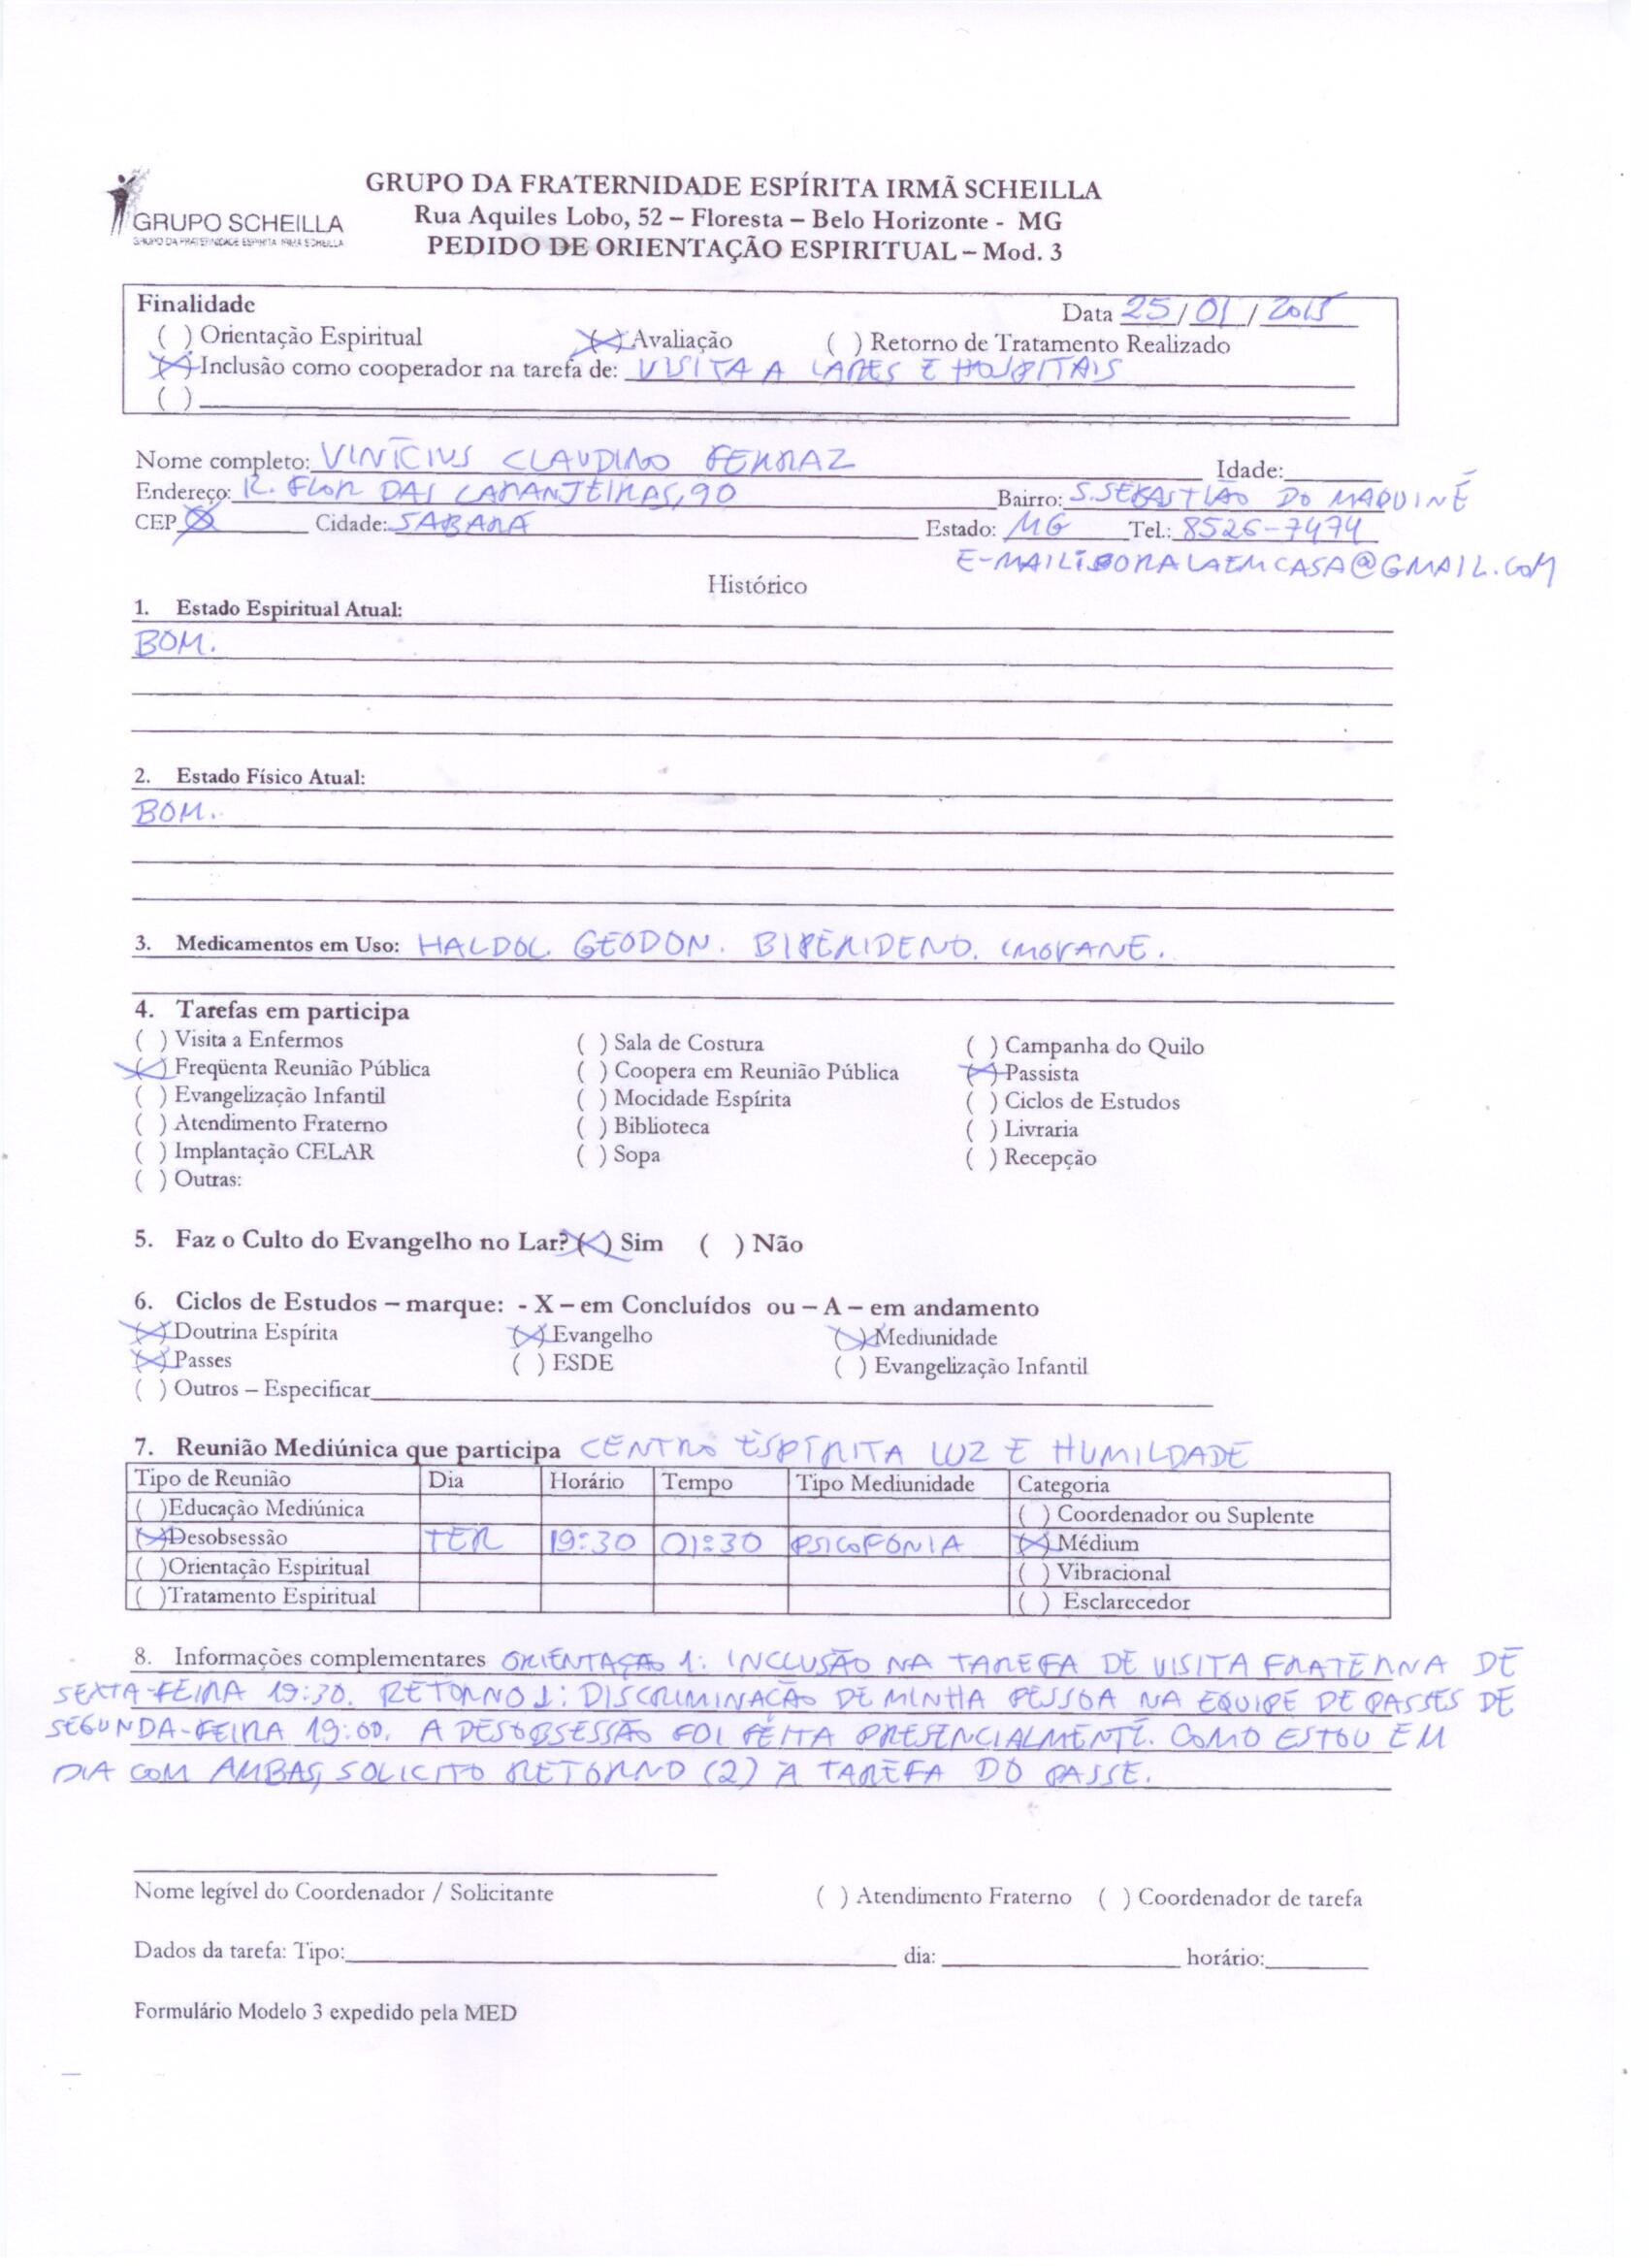 GRUPO SCHEILLA
GRUPO DA FRATERNIDADE ESPÍRITA IRMÃ SCHEILLA
GRUPO DA FRATERNIDADE ESPÍRITA IRMÃ SCHEILLA
Rua Aquiles Lobo, 52 – Floresta – Belo Horizonte - MG
PEDIDO DE ORIENTAÇÃO ESPIRITUAL – Mod. 3
Finalidade Data 25/01/2015
( ) Orientação Espiritual (X) Avaliação ( ) Retorno de Tratamento Realizado
(X) Inclusão como cooperador na tarefa de: VISITA A LARES E HOSPITAIS
( )
Nome completo: VINÍCIUS CLAUDINO FERRAZ Idade:
Endereço: R. FLOR DAS LARANJEIRAS, 90 Bairro: S. SEBASTIÃO DO MAQUINÉ
CEP Cidade: SABARÁ Estado: MG Tel.: 8526-7474
E-MAIL: BORALAEMCASA@GMAIL.COM
Histórico
1. Estado Espiritual Atual:
BOM.
2. Estado Físico Atual:
BOM.
3. Medicamentos em Uso: HALDOL. GEODON. BIPERIDENO. IMOVANE.
4. Tarefas em participa
( ) Visita a Enfermos ( ) Sala de Costura ( ) Campanha do Quilo
(X) Freqüenta Reunião Pública ( ) Coopera em Reunião Pública (X) Passista
( ) Evangelização Infantil ( ) Mocidade Espírita ( ) Ciclos de Estudos
( ) Atendimento Fraterno ( ) Biblioteca ( ) Livraria
( ) Implantação CELAR ( ) Sopa ( ) Recepção
( ) Outras:
5. Faz o Culto do Evangelho no Lar? (X) Sim ( ) Não
6. Ciclos de Estudos – marque: - X – em Concluídos ou – A – em andamento
(X) Doutrina Espírita (X) Evangelho (X) Mediunidade
(X) Passes ( ) ESDE ( ) Evangelização Infantil
( ) Outros – Especificar
7. Reunião Mediúnica que participa CENTRO ESPÍRITA LUZ E HUMILDADE
Tipo de Reunião Dia Horário Tempo Tipo Mediunidade Categoria
( ) Educação Mediúnica ( ) Coordenador ou Suplente
(X) Desobsessão TER 19:30 01:30 PSICOFONIA (X) Médium
( ) Orientação Espiritual ( ) Vibracional
( ) Tratamento Espiritual ( ) Esclarecedor
8. Informações complementares ORIENTAÇÃO 1: INCLUSÃO NA TAREFA DE VISITA FRATERNA DE
SEXTA-FEIRA 19:30. RETORNO 1: DISCRIMINAÇÃO DE MINHA PESSOA NA EQUIPE DE PASSES DE
SEGUNDA-FEIRA 19:00. A DESOBSESSÃO FOI FEITA PRESENCIALMENTE. COMO ESTOU EM
DIA COM AMBAS, SOLICITO RETORNO (2) À TAREFA DO PASSE.
Nome legível do Coordenador / Solicitante ( ) Atendimento Fraterno ( ) Coordenador de tarefa
Dados da tarefa: Tipo: dia: horário:
Formulário Modelo 3 expedido pela MED